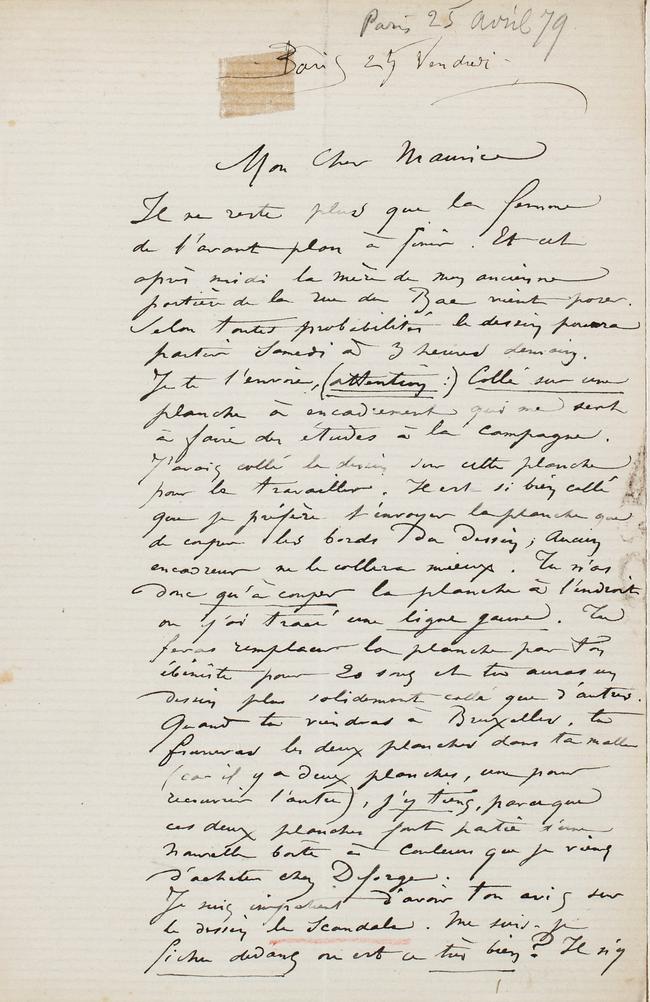 Paris 25 Avril 79
Paris 25 Vendredi
Mon Cher Maurice
Il ne reste plus que la femme
de l'avant plan à finir. Et cet
après midi la mère de mon ancienne
portière de la rue du Bac vient poser.
Selon toutes probabilités le dessin pourra
partir Samedi à 3 heures demain.
Je te l'envoie, (attention :) Collé sur une
planche à encadrement qui me sert
à faire des études à la campagne.
J'avais collé le dessin sur cette planche
pour le travailler. Il est si bien collé
que je préfère t'envoyer la planche que
de couper les bords Du Dessin; Aucun
encadreur ne le collera mieux. Tu n'as
donc qu'à couper la planche à l'endroit
où j'ai tracé une ligne jaune. Tu
feras remplacer la planche par ton
ébéniste pour 20 sous et tu auras un
dessin plus solidement collé que d'autres.
Quand tu viendras à Bruxelles, tu
fourreras les deux planches dans ta malle
(car il y a deux planches, une pour
recouvrir l'autre), j'y tiens, parceque
ces deux planches font partie d'une
nouvelle boîte à couleurs que je viens
d'acheter chez Deforge.
Je suis impatient d'avoir ton avis sur
le dessin le Scandale. Me suis-je
fichu dedans ou est ce très bien? Il n'y